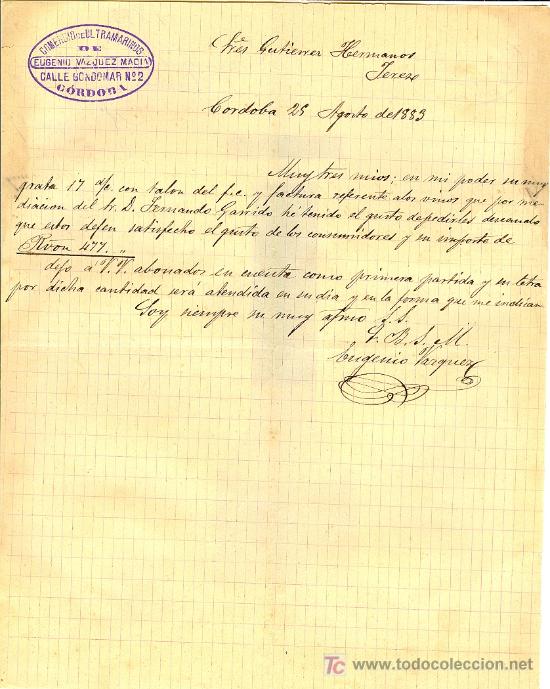 COMERCIO DE ULTRAMARINOS
DE
EUGENIO VAZQUEZ MACIA
CALLE GONDOMAR Nº 2
CÓRDOBA
Sres Gutierrez Hermanos
Jerez
Cordoba 25 Agosto de 1883
Muy Sres mios; en mi poder su muy
grata 17 a/c. con talon del f.c. y factura referente a los vinos que por me-
diacion del Sr. D. Fernando Garrido he tenido el gusto de pedirles deseando
que estos dejen satisfecho el gusto de los consumidores y su importe de
Rvon 477. "
dejo á V.V. abonados en cuenta como primera partida y su letra
por dicha cantidad será atendida en su dia y en la forma que me indican
Soy siempre su muy afmo S.S.
Q. B. S. M.
Eugenio Vazquez
TC
www.todocoleccion.net